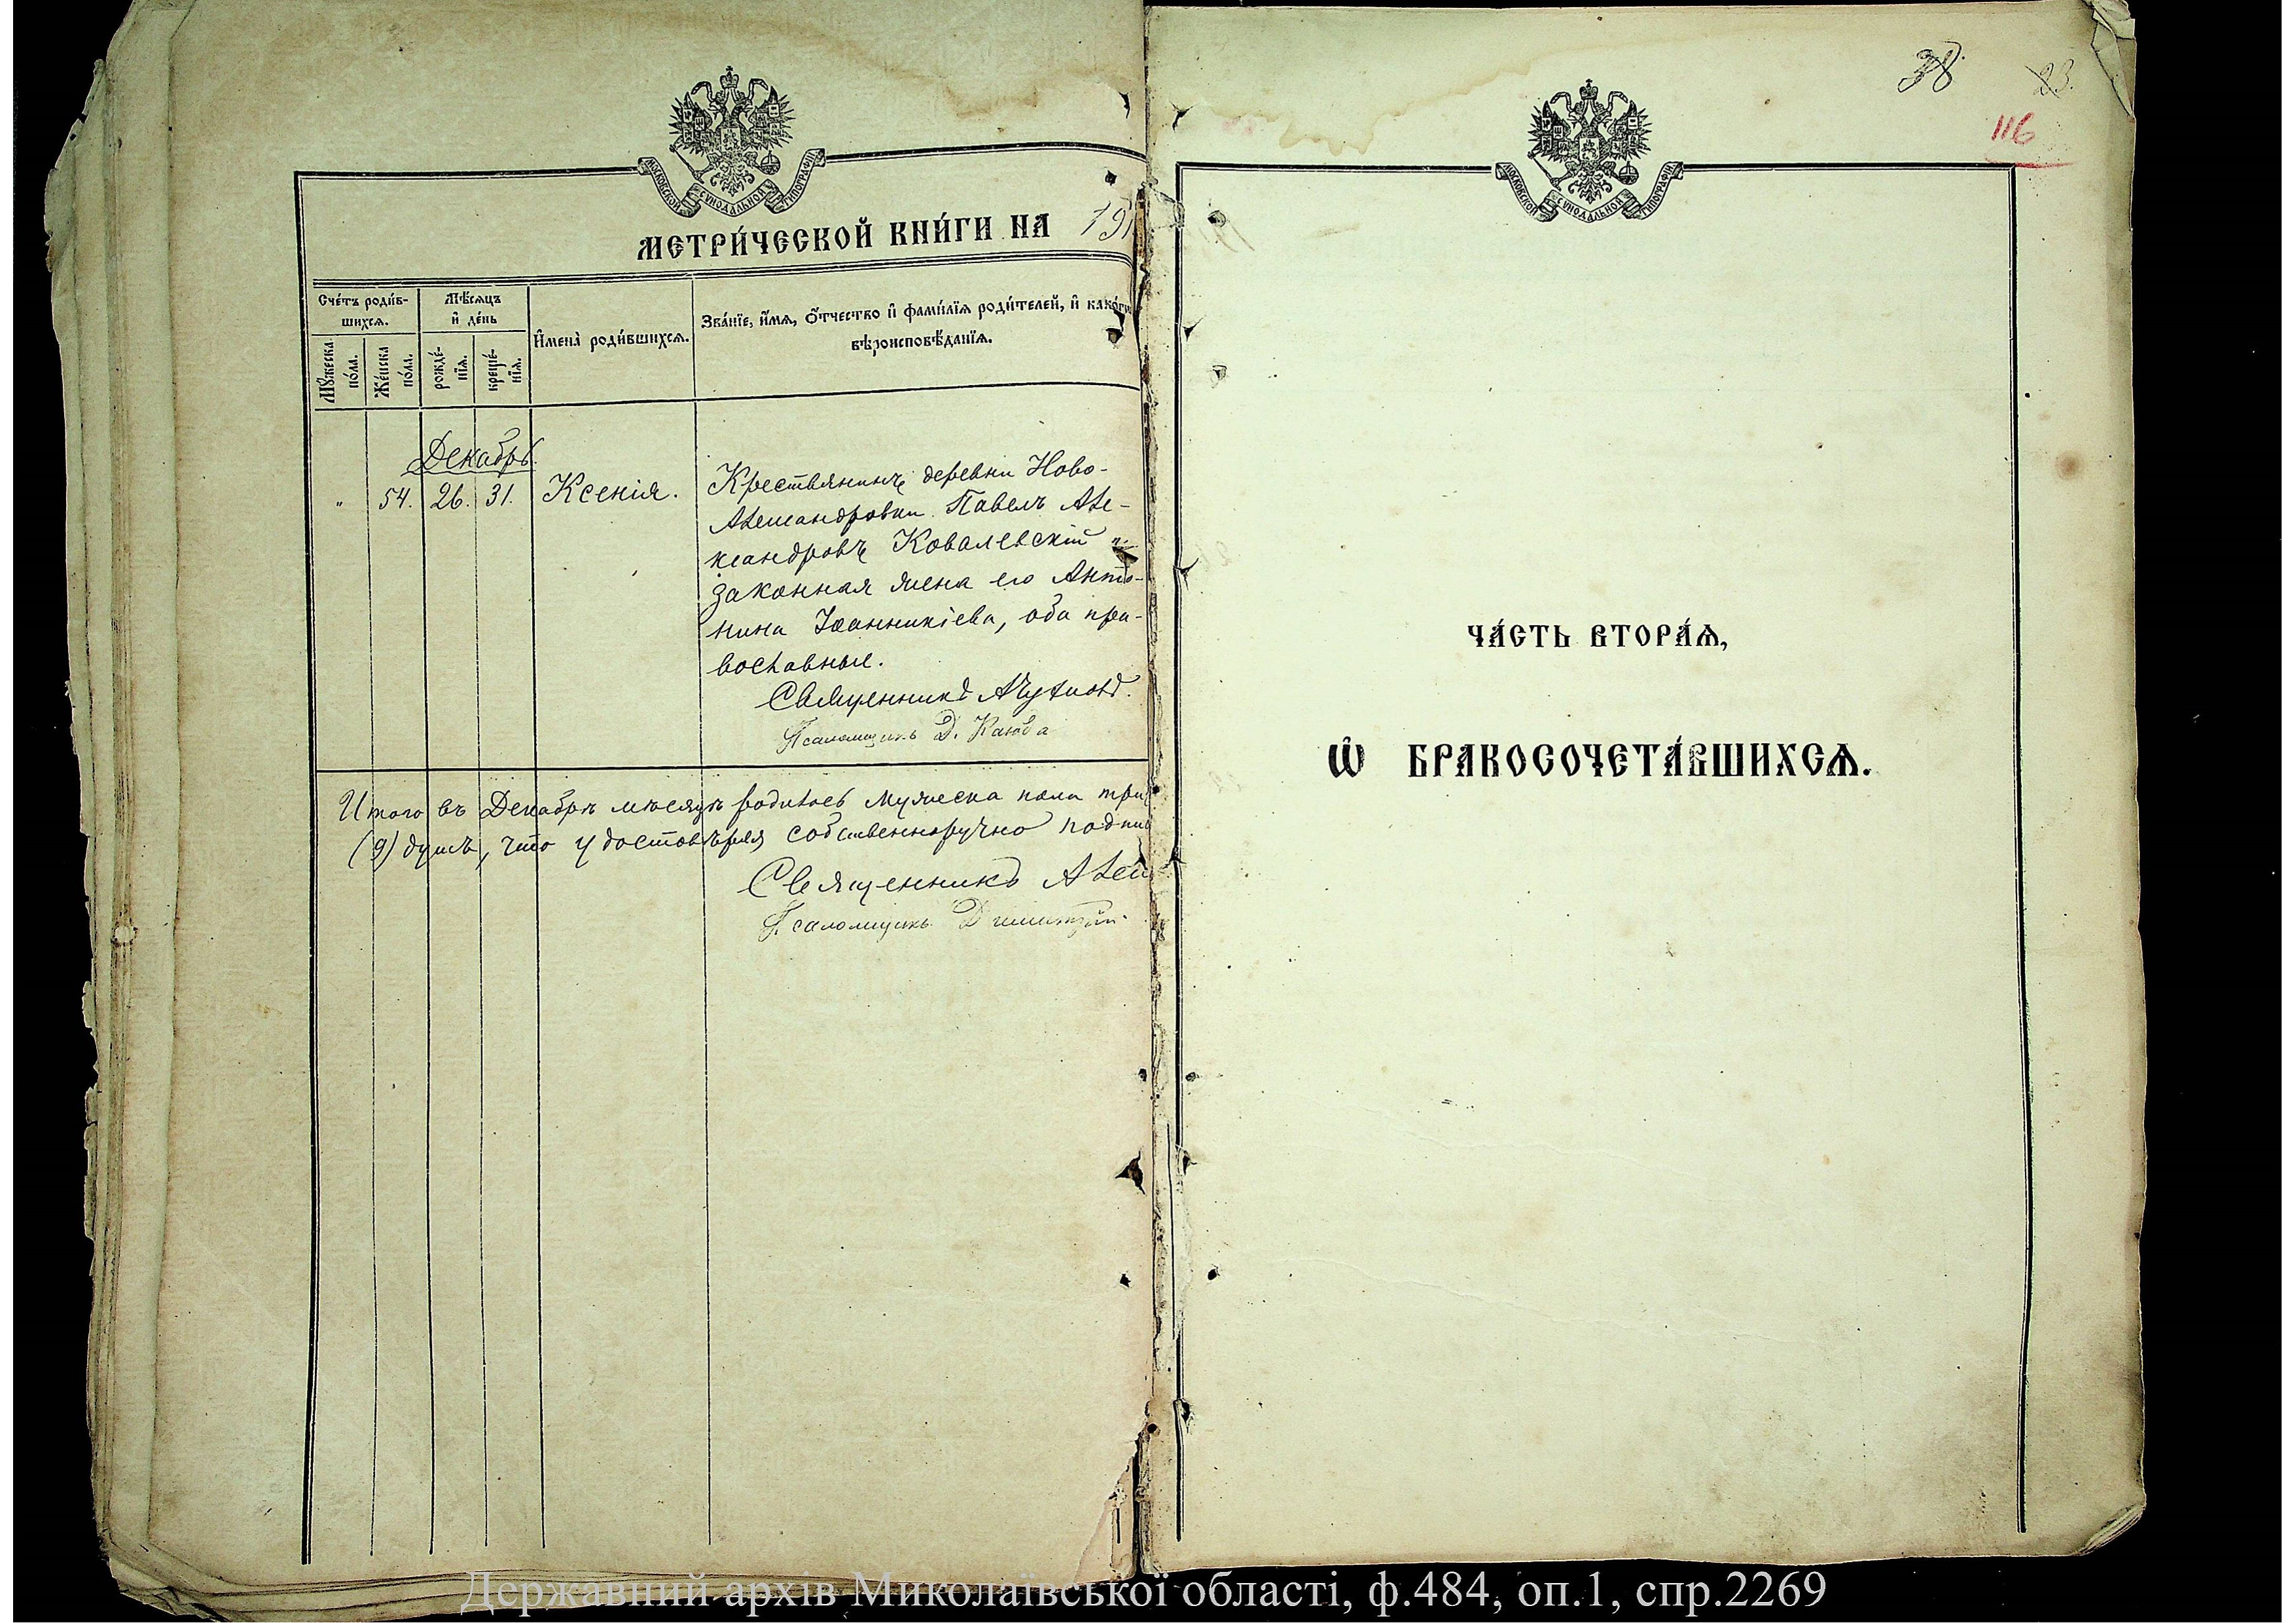 МОСКОВСКОЙ СѴНОДАЛЬНОЙ ТИПОГРАФІИ
МЕТРИ́ЧЕСКОЙ КНИ́ГИ НА 191
Сче́тъ роди́в-
шихсѧ.
Мꙋ́жеска
по́ла.
Же́нска
по́ла.
Мѣ́сѧцъ
и҆ де́нь
рожде́-
нїѧ.
креще́-
нїѧ.
И҆мена̀ роди́вшихсѧ.
Зва́нїе, и҆́мѧ, ѻ҆́тчество и҆ фами́лїѧ роди́телей, и҆ како́гѡ
вѣроисповѣ́данїѧ.
Декабрь
" 54. 26. 31. Ксенія.
Крестьянинъ деревни Ново-
Александровки Павелъ Але-
ксандровъ Ковалевскій и
законная жена его Анто-
нина Іоанникіева, оба пра-
вославные.
Священникъ
Псаломщикъ Д.
Итого въ Декабрѣ мѣсяцѣ родилось мужеска пола три
(9) душъ, что удостовѣряя собственноручно подпи
Священникъ Алек
Псаломщикъ Димитрій
38. 23.
116
МОСКОВСКОЙ СѴНОДАЛЬНОЙ ТИПОГРАФІИ
ЧА́СТЬ ВТОРА́Ѧ,
Ѡ҆ БРАКОСОЧЕТА́ВШИХСѦ.
Державний архів Миколаївської області, ф.484, оп.1, спр.2269